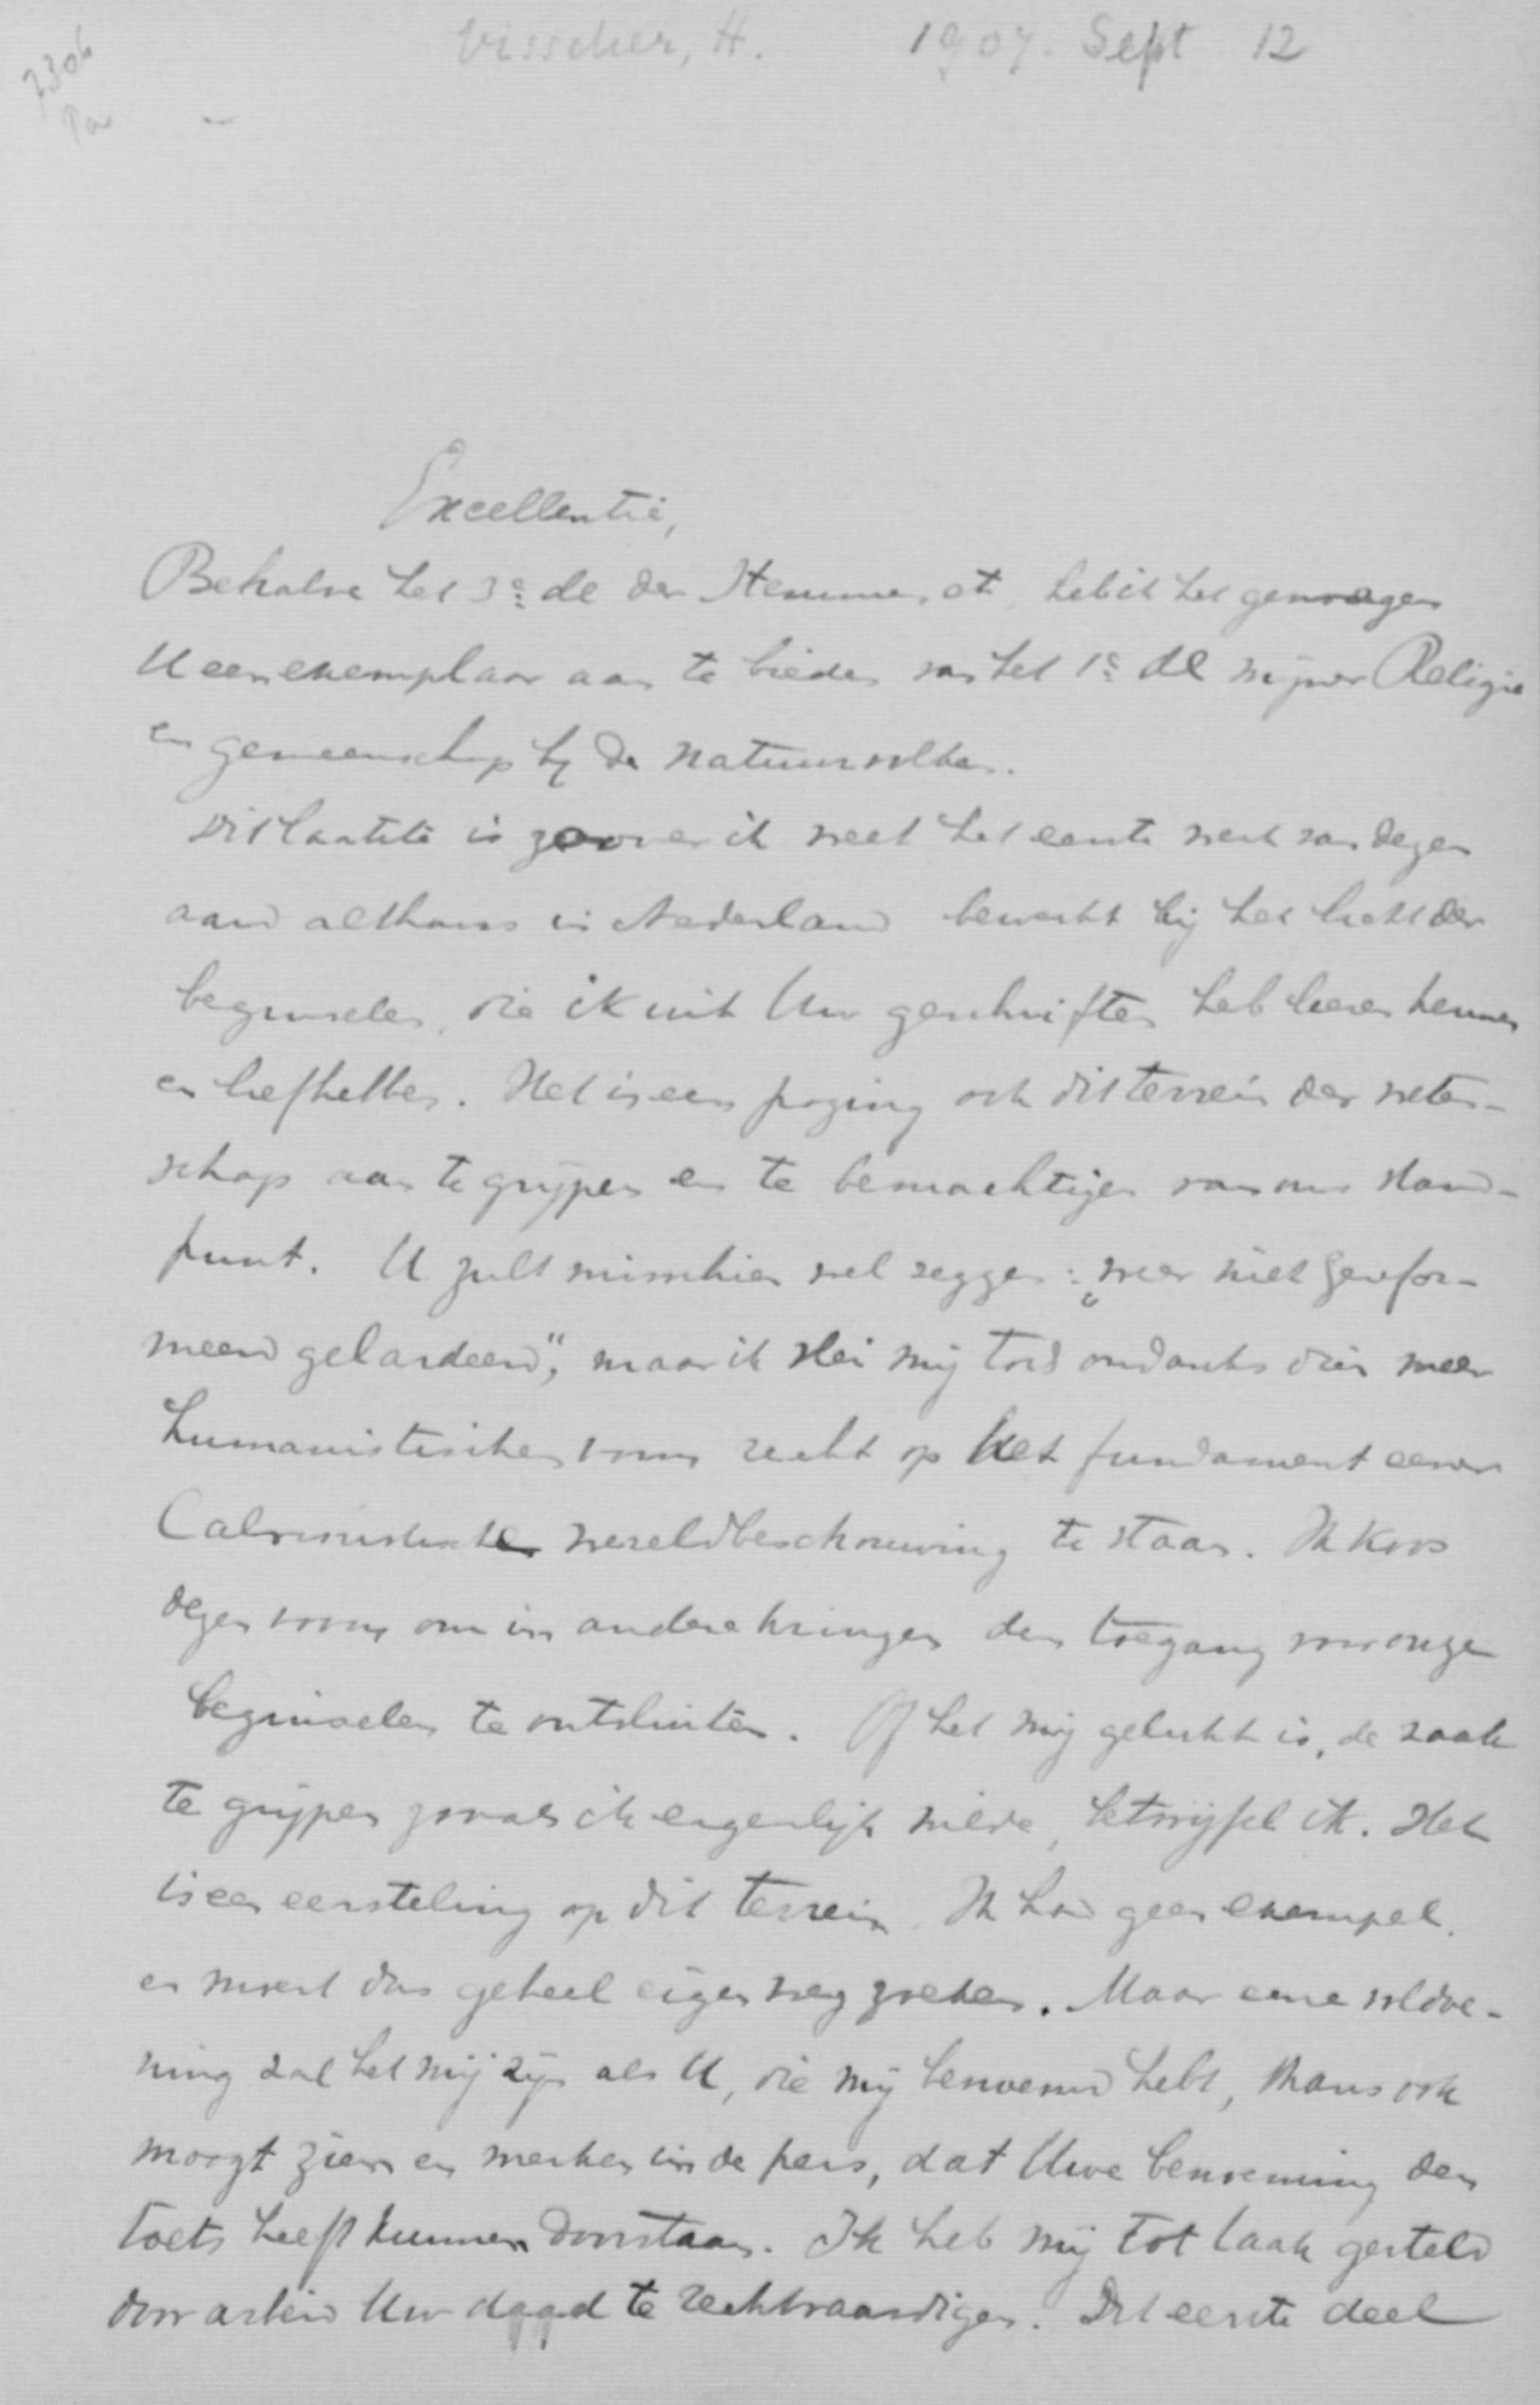 Visscher, H. 1907. Sept 12
7306
Excellentie,
Behalve het 3e dl der Stemmen, et heb ik het genoegen
U een exemplaar aan te bieden van het 1e dl mijner Religie
en gemeenschap bij de natuurvolken.
Dit laatste is zoover ik weet het eerste werk van dezen
aard althans in Nederland bewerkt bij het licht der
beginselen, die ik uit Uw geschriften heb leeren kennen
en liefhebben. Het is een poging ook dit terrein der weten-
schap aan te grijpen en te bemachtigen van ons stand-
punt. U zult misschien wel zeggen: „weer niet Gerefor-
meerd gelardeerd", maar ik vlei mij toch ondanks dien meer
humanistischen vorm recht op het fundament eener
Calvinistische wereldbeschouwing te staan. Ik koos
dezen vorm om in andere kringen den toegang voor onze
beginselen te ontsluiten. Of het mij gelukt is, de zaak
te grijpen zooals ik eigenlijk wilde, betwijfel ik. Het
is een eersteling op dit terrein. Ik had geen exempel
en moest dus geheel eigen weg zoeken. Maar eene voldoe-
ning zal het mij zijn als U, die mij benoemd hebt, thans ook
moogt zien en merken in de pers, dat Uwe benoeming den
toets heeft kunnen doorstaan. Ik heb mij tot taak gesteld
door arbeid Uw daad te rechtvaardigen. Dit eerste deel